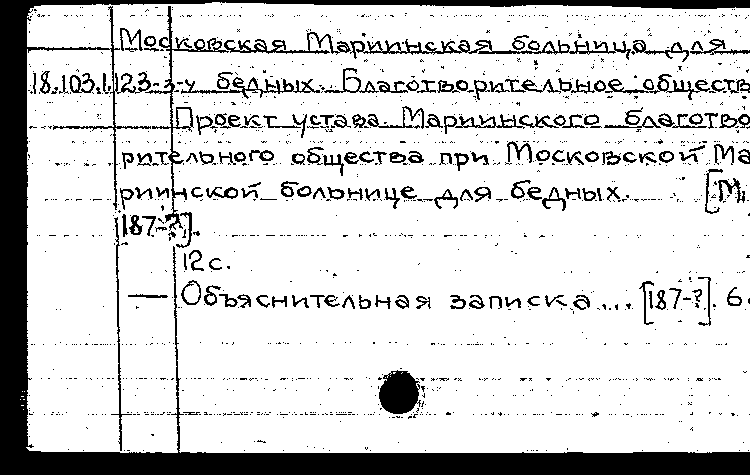 Московская Мариинская больница для
18.103.1.123-з-у бедных. Благотворительное обществ
Проект устава Мариинского благотво
рительного общества при Московской Ма
риинской больнице для бедных. [М,
[187-?].
12 с.
— Объяснительная записка... [187-?]. 6